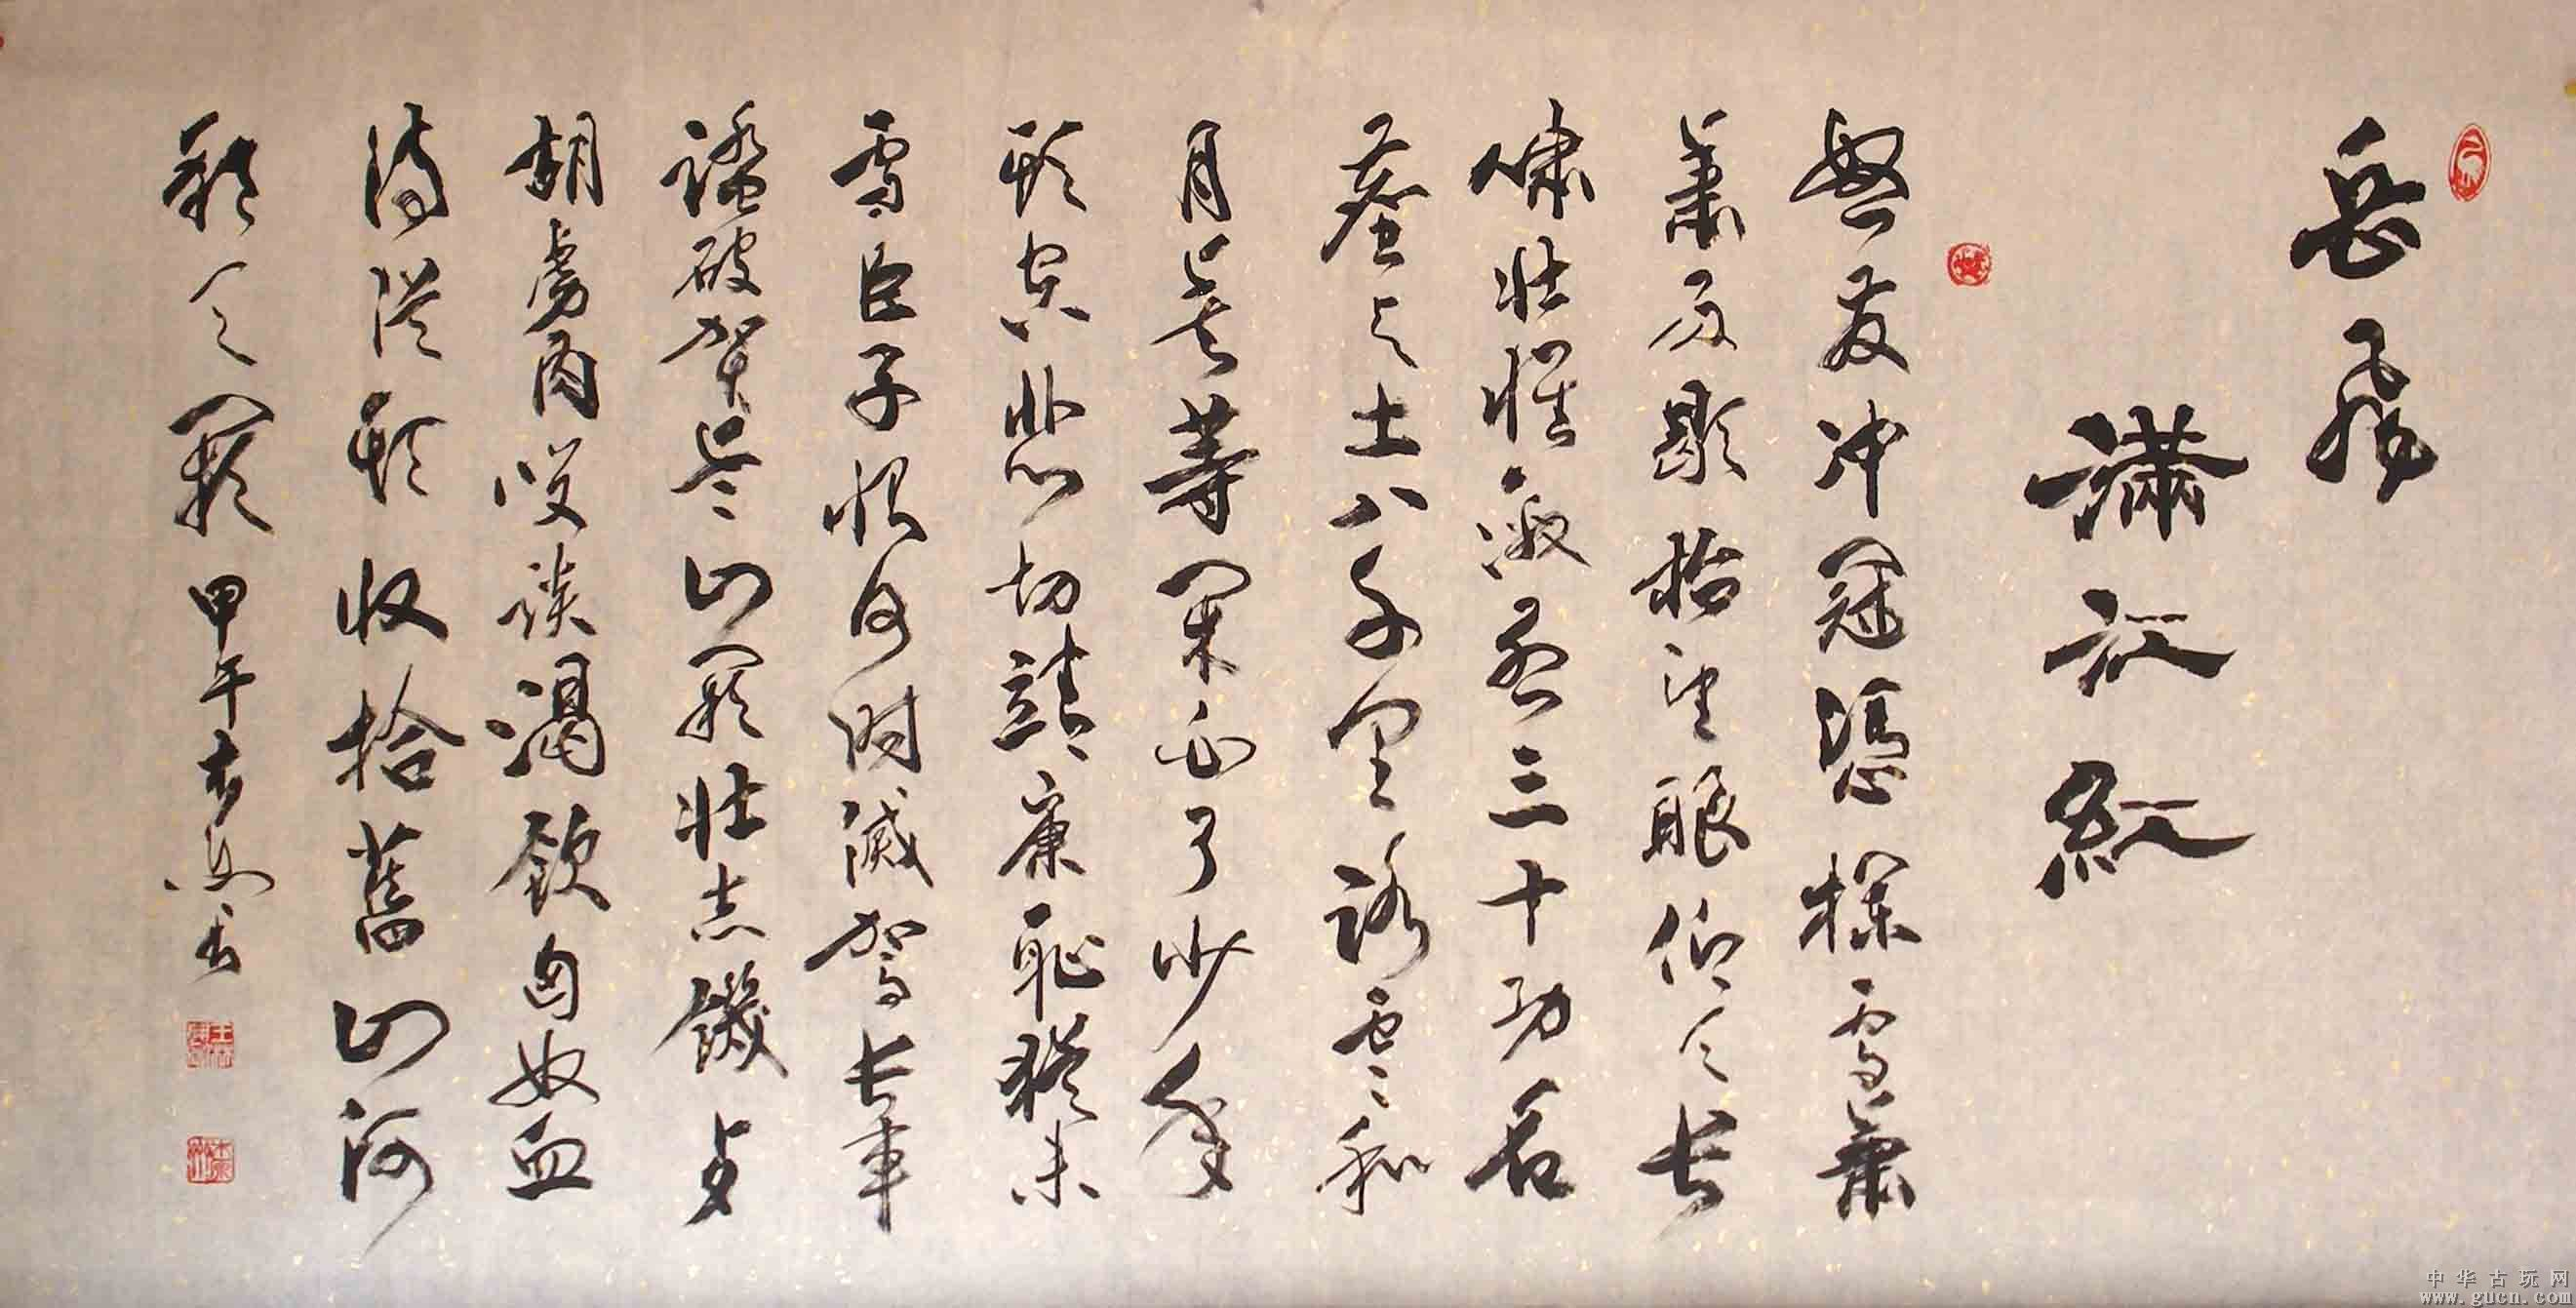 岳飛
滿江紅
怒发冲冠憑欄處蕭
蕭雨歇抬望眼仰天长
嘯壮懷激烈三十功名
塵与土八千里路雲和
月莫等閑白了少年
頭空悲切靖康恥猶未
雪臣子恨何时滅駕长車
踏破贺兰山闕壮志饑餐
胡虜肉笑談渴飲匈奴血
待從頭收拾舊山河
朝天闕 甲午
中华古玩网
www.gucn.com